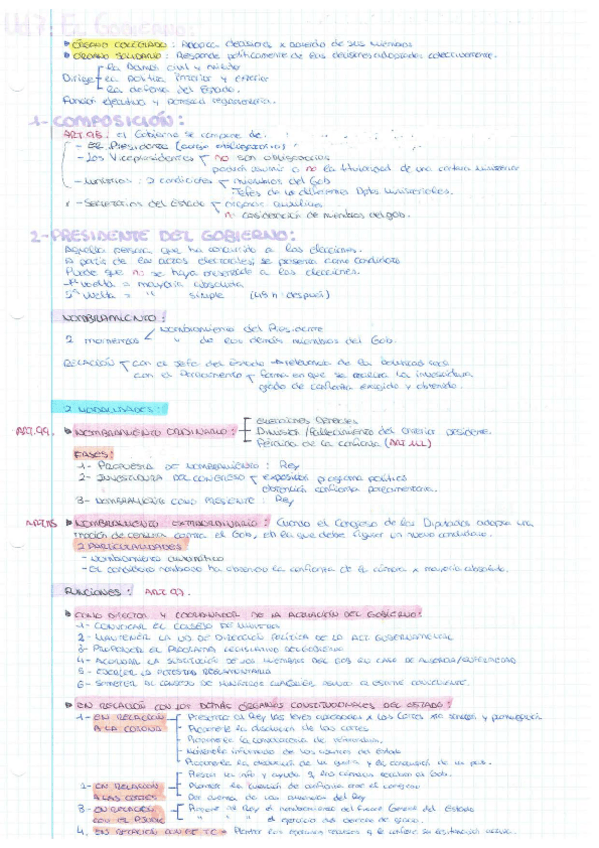 Ud 7: El Gobierno.
▸ ÓRGANO COLEGIADO: Adopta decisiones x acuerdo de sus miembros
▸ ÓRGANO SOLIDARIO: Responde políticamente de las decisiones adoptadas colectivamente.
La Admón civil y militar
Dirige La política interior y exterior
La defensa del Estado.
Función ejecutiva y potestad reglamentaria.
1- COMPOSICIÓN:
ART. 98. el Gobierno se compone de:
- El Presidente
- Los Vicepresidentes no son obligatorios
podrán asumir o no la titularidad de una cartera ministerial
- Ministros: 2 condiciones miembros del Gob
Jefes de los diferentes Dptos ministeriales.
- Secretarios del Estado órganos auxiliares
no consideración de miembros del gob.
2- PRESIDENTE DEL GOBIERNO:
Aquella persona que ha concurrido a las elecciones.
A partir de los actos electorales se presenta como candidato
Puede que no se haya presentado a las elecciones.
1ª vuelta = mayoría absoluta
" = " simple (48h después)
NOMBRAMIENTO:
nombramiento del Presidente
2 momentos
" de los demás miembros del Gob.
RELACIÓN con el Jefe del Estado → relevancia de la
con el Parlamento forma en que se realiza la investidura
grado de confianza exigido y obtenido.
2 MODALIDADES:
elecciones generales
ART. 99. ▸ NOMBRAMIENTO ORDINARIO: Dimisión/Fallecimiento del anterior presidente.
Pérdida de la confianza (ART 112)
FASES:
1- PROPUESTA DE NOMBRAMIENTO: Rey
2- INVESTIDURA DEL CONGRESO exposición programa político
obtención confianza parlamentaria.
3- NOMBRAMIENTO COMO PRESIDENTE Rey
▸ NOMBRAMIENTO EXTRAORDINARIO: Cuando el Congreso de los Diputados adopta una
moción de censura contra el Gob, en la que debe figurar un nuevo candidato.
2 PARTICULARIDADES
- Nombramiento automático
- El candidato nombrado ha obtenido la confianza de la cámara x mayoría absoluta.
FUNCIONES: ART 97.
▸ COMO DIRECTOR Y COORDINADOR DE LA ACTUACIÓN DEL GOBIERNO:
1- CONVOCAR EL CONSEJO DE MINISTROS
2- MANTENER LA DE DIRECCIÓN POLÍTICA DE LA ACT GUBERNAMENTAL
3- PROPONER EL PROGRAMA LEGISLATIVO DEL GOBIERNO
4- ACORDAR LA SUSTITUCIÓN DE LOS MIEMBROS DEL GOB EN CASO DE AUSENCIA/ENFERMEDAD
5- EJERCER LA POTESTAD REGLAMENTARIA
6- SOMETER AL CONSEJO DE MINISTROS CUALQUIER ASUNTO QUE ESTIME CONVENIENTE.
▸ EN RELACIÓN CON LOS DEMÁS ÓRGANOS CONSTITUCIONALES DEL ESTADO:
1- EN RELACIÓN Presentar al Rey las leyes aprobadas x las Cortes sanción y promulgación
A LA CORONA Proponerle la disolución de las cortes
Proponerle la convocatoria de referéndum.
Mantenerle informado de los asuntos del Estado
Proponerle la declaración de la guerra y la conclusión de la paz.
2- EN RELACIÓN Plantear la cuestión de confianza ante el congreso
A LAS CORTES Dar cuenta de las
3- EN RELACIÓN Proponer al Rey el nombramiento del Fiscal General del Estado
" " " el ejercicio del derecho de gracia.
4. EN RELACIÓN AL TC - Plantear los